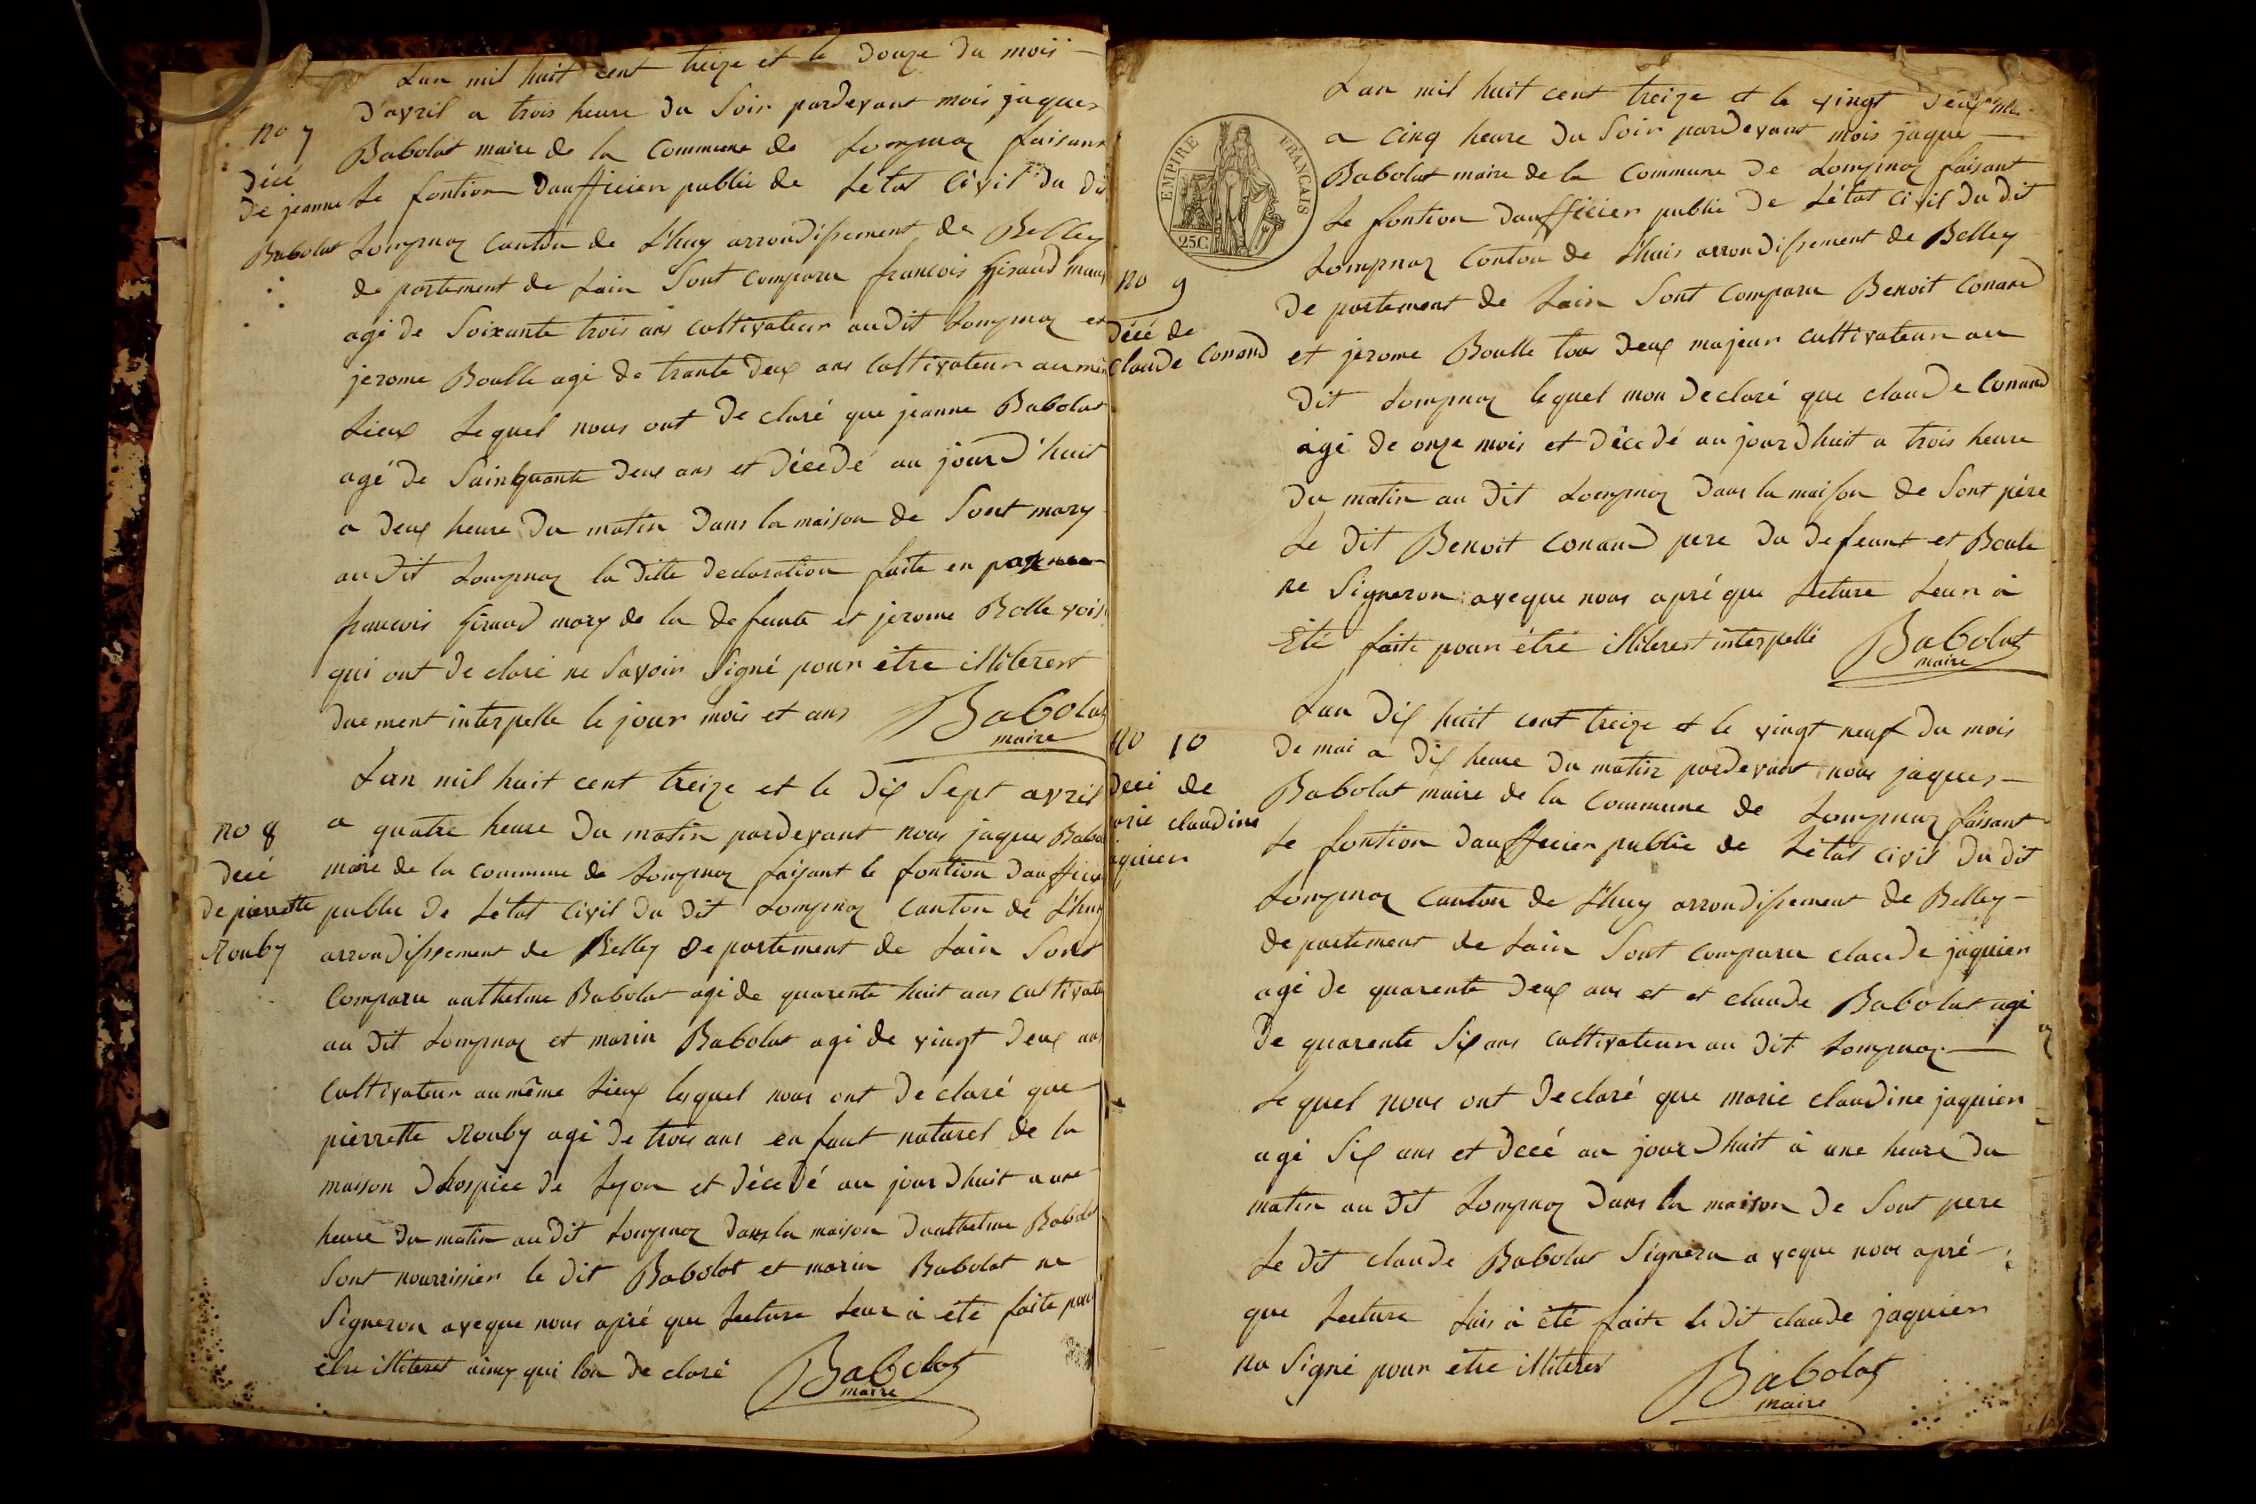 no 7
décé
de jeanne
Babolat
Lan mil huit cent treize et le douze du mois
davril a trois heure du Soir pardevant mois jaques
Babolat maire de la Commune de Lompnaz faisant
Le fontion daufficier public de Létat Civil du dit
Lompnaz Canton de Lhuy arrondissement de Belley
de partement de Lain Sont comparu francois Giraud
agé de Soixante trois ans cultivateur audit Lompnaz et
jerome Boulle agé de trante deux ans Cultivateur au
Lieux Lequel nous ont de claré que jeanne Babolat
agé de Sainkquante deux ans et décédé au jourd'huit
a deux heure du matin dans la maison de Sont mary
audit Lompnaz la ditte declaration faite en
francois Giraud mary de la defeunte et jerome Bolle
qui ont de claré ne Savoir Signé pour être illiterest
duement interpelle le jour mois et ans
Babolat
maire
no 8
décé
de pierrette
Rouby
Lan mil huit cent treize et le dix Sept avril
a quatre heure du matin pardevant nous jaques
maire de la commune de Lompnaz faisant le fontion
public de Létat Civil du dit Lompnaz Canton de Lhuy
arrondissement de Belley departement de Lain Sont
Comparu anthelme Babolat agé de quarente huit ans
au dit Lompnaz et marin Babolat agé de vingt deux ans
Cultivateur au même Lieux lesquel nous ont de claré que
pierrette Rouby agé de trois ans enfant naturel de la
maison dhospice de Lyon et décédé au jourdhuit a une
heure du matin au dit Lompnaz dans la maison danthelme Babolat
Sont nourrissier le dit Babolat et marin Babolat ne
Signeron aveque nous apré que Lecture Leur à été faite pour
être illiterest ainsy qui lon de claré
Babolat
maire
EMPIRE FRANÇAIS
25C
no 9
décé de
claude Conand
Lan mil huit cent treize et le vingt deux
a cinq heure du Soir pardevant mois jaque
Babolat maire de la Commune de Lompnaz faisant
Le fontion daufficier public de Létat Civil du dit
Lompnaz Conton de Lhuis arrondissement de Belley
de partement de Lain Sont Comparu Benoit Conand
et jerome Boulle tous deux majeur cultivateur au
dit Lompnaz lequel mon declaré que claude Conand
agé de onze mois et décédé au jourdhuit a trois heure
du matin au dit Lompnaz dans la maison de Sont père
Le dit Benoit Conand pere du defeunt et Boule
ne Signeron aveque nous apré que Lecture Leur à
Eté faite pour étré illiterest interpellé
Babolat
maire
no 10
décé de
claudine
Lan dix huit cent treize et le vingt neuf du mois
de mai a dix heure du matin pardevant nous jaques
Babolat maire de la Commune de Lompnaz faisant
Le fontion daufficier public de Létat civil du dit
Lompnaz Canton de Lhuy arrondissement de Belley
departement de Lain Sont comparu claude jaquier
agé de quarente deux ans et et claude Babolat agé
de quarente Six ans Cultivateur au dit Lompnaz
Lequel nous ont declaré que marie claudine jaquier
agé Six ans et décé au jourdhuit à une heure du
matin au dit Lompnaz dans la maison de Sont pere
Le dit claude Babolat Signera aveque nous apré
que Lecture Luis à été faite le dit claude jaquier
na Signé pour être illiterest
Babolat
maire